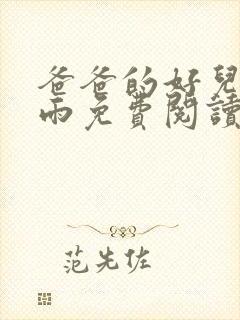 爸爸的好兒
雨免費閱讀
范先佐